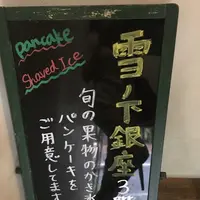 pancake
Shaved Ice
雪ノ下銀座
3階
旬の果物のかき氷
パンケーキを
ご用意してます